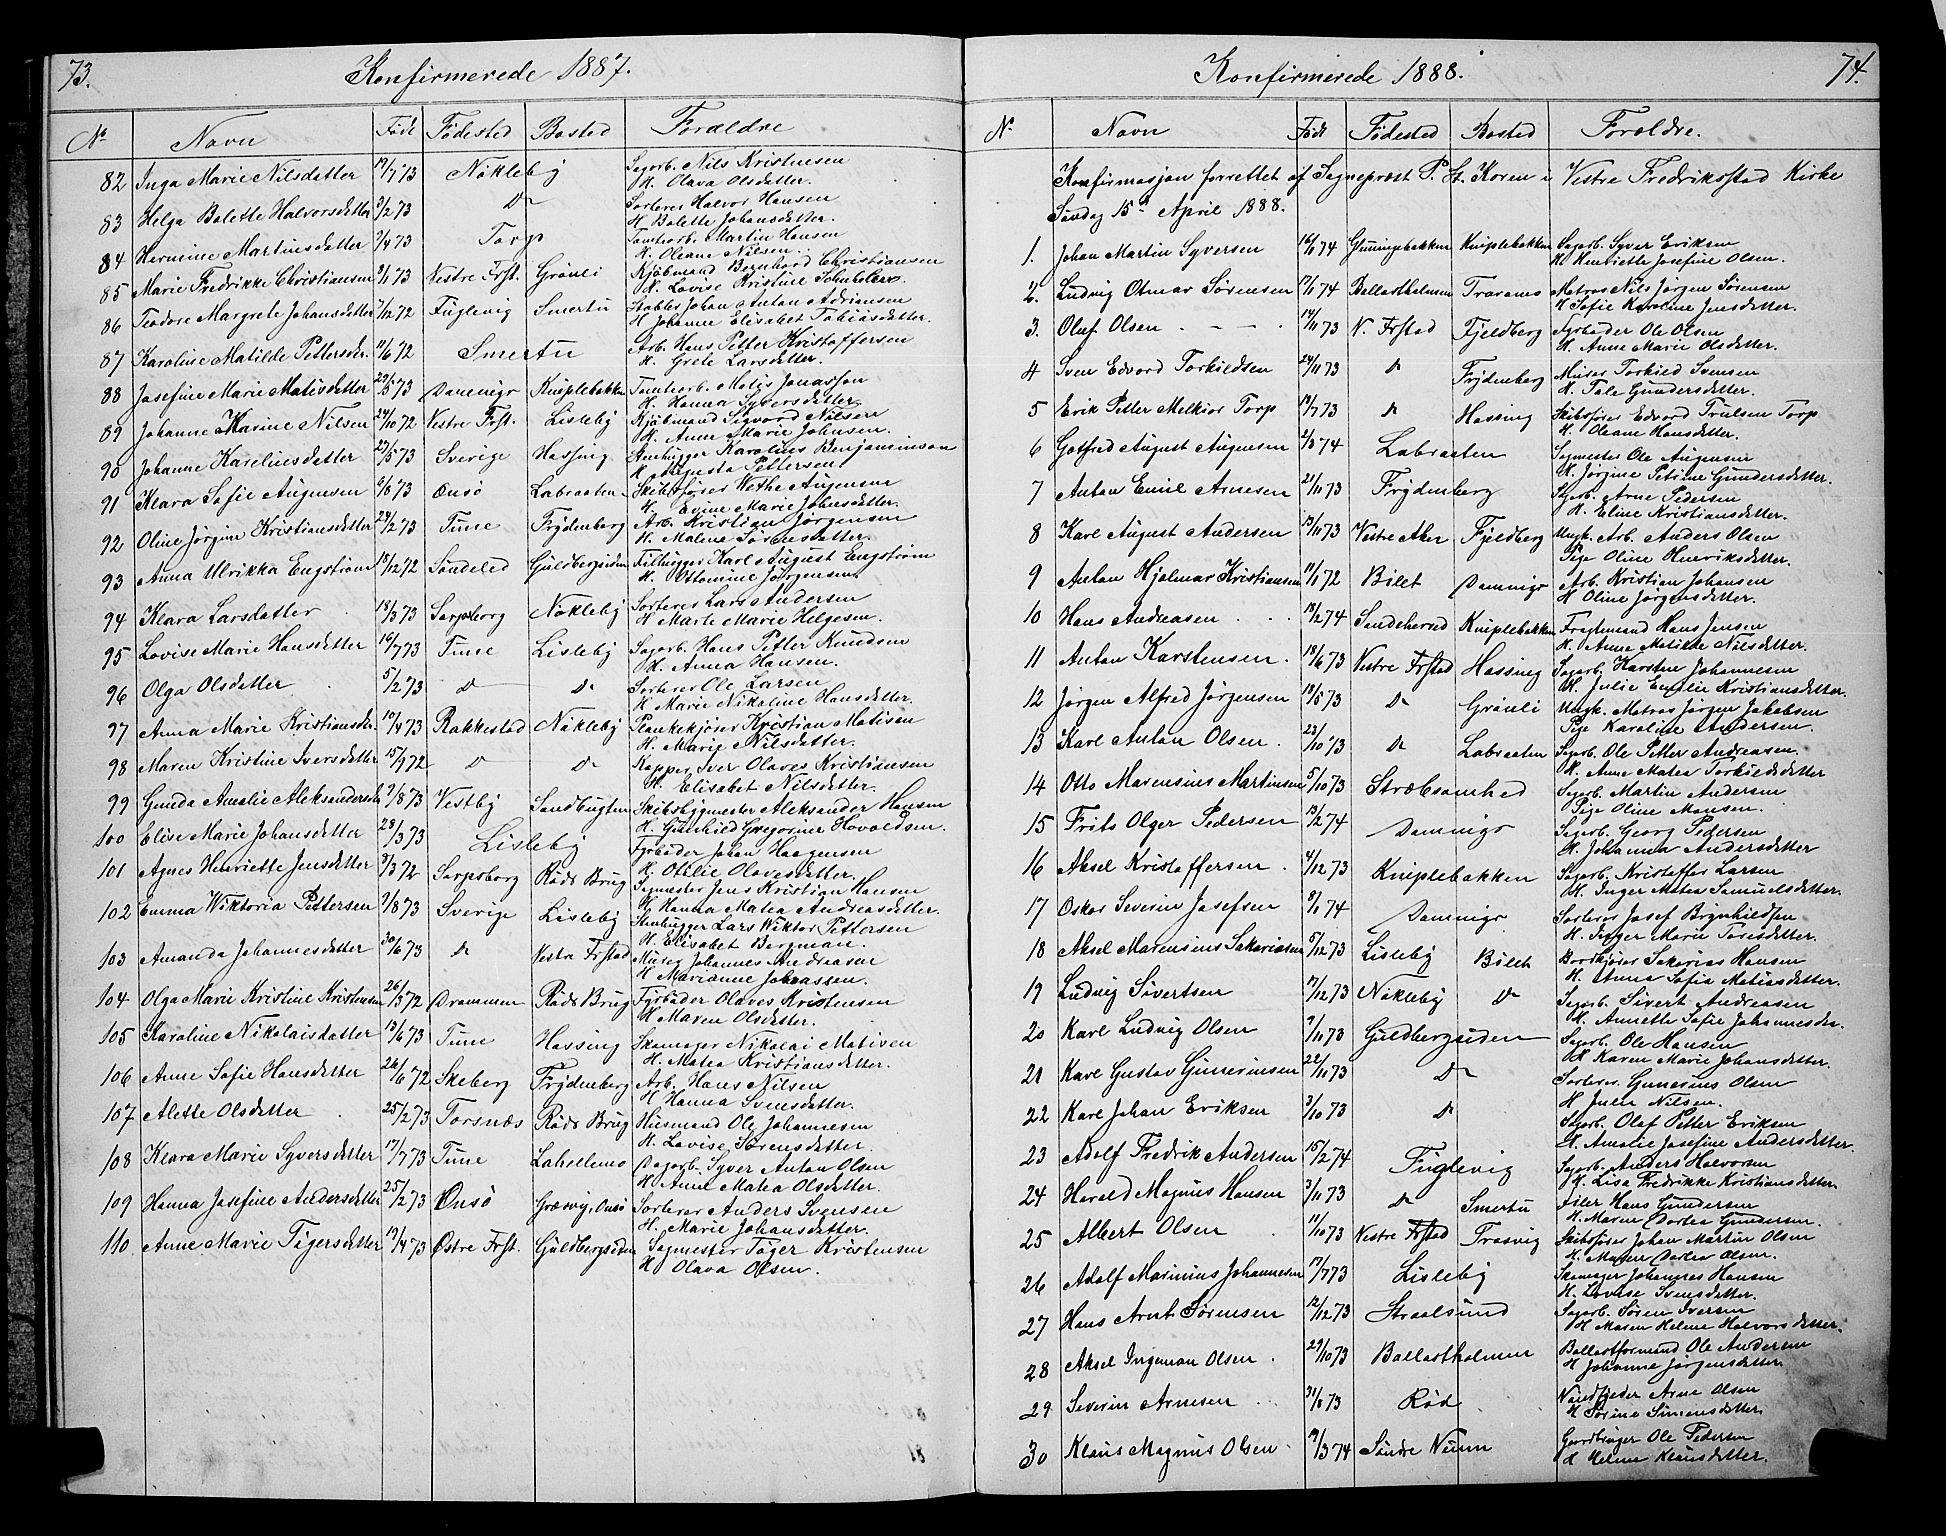 73. Konfirmerede 1887.
No Navn Født Fødested Bosted Forældre
82 Inga Marie Nilsdatter 19/7 73 Nøkleby Sagarb. Nils Kristensen
H. Olava Olsdatter.
83 Helga Balette Halvorsdatter 3/2 73 Do Sorterer Halvor Hansen
H Balette Johansdatter.
84 Hermine Martinsdatter 7/4 73 Torp Tomtearb. Martin Hansen
H. Oleane Nilsen.
85 Marie Fredrikke Christiansen 2/1 73 Vestre Frst. Grønli Kjøbmand Bernhard Christiansen
H. Lovise Kristine
86 Teodore Margrete Johansdatter 7/12 72 Fuglevig Smertu Stabber Johan Anton Adriansen
H Johanne Elisabet Tobiasdatter.
87 Karoline Matilde Pettersdr. 11/6 72 Smertu Arb. Hans Petter Kristoffersen
H. Grete Larsdatter.
88 Josefine Marie Matisdatter 23/5 73 Damnigs Kniplebakken Tomtearb. Matis Jonassen
H. Hanna Syversdatter.
89 Johanne Marine Nilsen 24/10 72 Vestre Frst. Lisleby Kjøbmand Sigvard Nilsen
H. Anne Marie Johnsen.
90 Johanne Karelinesdatter 23/5 73 Sverige Hassing Stenhugger Karolius Benjaminson
H Augusta Pettersen
91 Klara Sofie Augensen 6/8 73 Onsø Labraaten Skibsfører Wethe Augensen
H. Evine Marie Johnsdatter.
92 Oline Jørgine Kristiansdatter 24/2 73 Tune Frydenberg Arb. Kristian Jørgensen
H. Malene Sørensdatter.
93 Anna Ulrikka Engstrøm 18/12 72 Søndeled Guldbergsiden Filhugger Karl August Engstrøm
H. Ottomine Jørgensen.
94 Klara Larsdatter 18/3 73 Sarpsborg Nøkleby Sorterer Lars Andersen
H Marte Marie Helgesen.
95 Lovise Marie Hansdatter 16/7 73 Tune Lisleby Sagarb. Hans Petter Knudsen
H. Anna Hansen.
96 Olga Olsdatter 5/2 73 Do Do Sorterer Ole Larsen
H Marie Nikoline Hansdatter.
97 Anna Marie Kristiansdr. 10/4 73 Rakkestad Nøkleby Plankekjører Kristian Matisen
H. Marie Nilsdatter.
98 Maren Kristine Iversdatter 15/9 72 Do Do Kapper Iver Olaves Kristiansen
H. Elisabet Nilsdatter.
99 Gunda Amalie Aleksandersdr 7/8 73 Vestby Sandbugten Skibsbygmester Aleksander Hansen
H. Gunhild Gregorine Hovaldsen.
100 Elise Marie Johansdatter 28/3 73 Lisleby Fyrbøder Johan Haagensen
H. Otilie Olavesdatter.
101 Agnes Henriette Jensdatter 3/3 72 Sarpsborg Røds Brug Sagmester Jens Kristian Hansen
H. Hanna Matea Andreasdatter.
102 Emma Wiktoria Pettersen 7/8 73 Sverige Lisleby Stenhugger Lars Wiktor Pettersen
H. Elisabet Bergman.
103 Amanda Johannesdatter 30/6 73 Do Vestre Frstad Murer Johannes Andreasen
H Marianne Johnassen.
104 Olga Marie Kristine Kristensen 26/3 72 Drammen Røds Brug Fyrbøder Olaves Kristensen
H Maren Olsdatter.
105 Karoline Nikolaisdatter 13/6 73 Tune Hassing Skomager Nikolai Mativen
H. Matea Kristiansdatter.
106 Anne Sofie Hansdatter 26/6 72 Skeberg Frydenberg Arb. Hans Nilsen
H Hanna Svensdatter.
107 Alette Olsdatter 25/2 73 Torsnæs Røds Brug Husmand Ole Johannesen
H. Lovise Sørensdatter.
108 Klara Marie Syversdatter 17/7 73 Tune Lahellemo Dagarb. Syver Anton Olsen
H Anne Matea Olsdatter.
109 Hanna Josefine Andersdatter 25/2 73 Onsø Græsvig, Onsø Sorterer Anders Svensen
H. Marie Johansdatter.
110 Anne Marie Tigersdatter 19/4 73 Østre Frst. Guldbergsiden Sagmester Tiger Kristensen
H. Olava Olsen.
Konfirmerede 1888. 74.
No Navn Født Fødested Bosted Forældre.
Konfirmasjon forrettet af Sogneprest P. St. Koren i Vestre Fredriksstad Kirke
Søndag 15de April 1888.
1. Johan Martin Syversen 16/1 74 Gluningebakken Kniplebakken Sagarb. Syver Eriksen
H. Henriette Josefine Olsen.
2. Ludvig Otmar Sørensen 17/1 74 Ballastholmen Traranes Matros Nils Jørgen Sørensen
H Sofie Karoline Jensdatter.
3. Oluf Olsen 14/11 73 V. Frstad Fjeldberg Fyrbøder Ole Olsen
H. Anne Marie Olsdatter.
4 Sven Edvard Torkildsen 24/11 73 Do Frydenberg Murer Torkild Svensen
H. Tale Gundersdatter.
5 Erik Petter Melkior Torp 19/7 73 Do Hassing Skibsfører Edvard Trulsen Torp
H. Oleane Hansdatter.
6 Gotfred August Augensen 2/3 74 Labraaten Sagmester Ole Augensen
H. Jørgine Petrine Gundersdatter.
7 Anton Emil Arnesen 21/11 73 Frydenberg Sagarb. Arne Pedersen
H. Eline Kristiansdatter.
8 Karl August Andersen 13/11 73 Vestre Aker Fjeldberg Ungk. Arb. Anders Olsen
Pige Oline Henriksdatter.
9 Anton Hjalmar Kristiansen 11/1 72 Bilet Damnigs Arb. Kristian Johansen
H Oline Jørgensdatter.
10 Hans Andreasen 18/2 74 Sandeherred Kniplebakken Fragtmand Hans Jensen
H. Anne Matilde Nilsdatter.
11 Anton Karstensen. 18/6 73 Vestre Frstad Hassing Sagarb. Karsten Johannesen
H. Julie Emilie Kristiansdatter.
12 Jørgen Alfred Jørgensen 18/5 73 Do Grønli Ungk. Matros Jørgen Jakobsen
Pige Karoline Andersen.
13 Karl Anton Olsen. 23/10 73 Do Labraaten Sagarb. Ole Petter Andreasen.
H. Anne Matea Torkildsdatter
14 Otto Marensius Martinsen 5/10 73 Stræbsomhed Sagarb. Martin Andersen
Pige Oline Monsen.
15 Frits Olger Pedersen 13/2 74 Damnigs Sagarb. Georg Pedersen
H. Johanna Andersdatter
16 Aksel Kristoffersen. 4/12 73 Kniplebakken Sagarb. Kristoffer Larsen
H. Inger Matea Samuelsdatter.
17 Oskar Severin Josefsen 8/1 74 Damnigs Sorterer Josef Brynhildsen
H. Inger Marie Toresdatter.
18 Aksel Marensius Sakariasen 5/12 73 Lisleby Bilet Bordkjører Sakarias Hansen
H. Anna Sofia Matiasdatter.
19 Ludvig Sivertsen 17/12 73 Nøkleby Do Sagarb. Sivert Andreasen
H. Annette Sofie Johannesdr.
20 Karl Ludvig Olsen 7/11 73 Guldbergsiden Sagarb. Ole Hansen
H Karen Marie Johansdatter.
21 Karl Gustav Gunerinsen 22/11 73 Do Sorterer Gunerius Olsen
H Julie Nilsen.
22 Karl Johan Eriksen 3/10 73 Do Sagarb. Olaf Petter Eriksen
H. Amalie Josefine Andersdatter.
23 Adolf Fredrik Andersen 15/2 74 Fuglevig Sagarb. Anders Halvorsen
H. Lisa Fredrikke Kristiansdatter.
24 Harald Magnus Hansen 3/11 73 Do Smertu Filer Hans Gundersen
H. Maren Dortea Gundersen.
25 Albert Olsen 11/10 73 Vestre Frstad Trosvig Skibsfører Johan Martin Olsen
H. Maren Dortea Olsen.
26 Adolf Marinius Johannesen 17/7 73 Lisleby Skomager Johannes Hansen
H. Lovise Svensdatter.
27 Hans Arnt Sørensen 12/12 73 Straalsund Sagarb. Søren Iversen
H Maren Helene Halvorsdatter.
28 Aksel Ingeman Olsen 29/10 73 Ballastholmen Ballastformand Ole Andersen
H Johanne Jørgensdatter.
29 Severin Arnesen 31/8 73 Rød. Arne Olsen
H Sørine Simensdatter.
30 Klaus Magnus Olsen 19/3 74 Søndre Gaardbruger Ole Pedersen
H Helene Klausdatter.